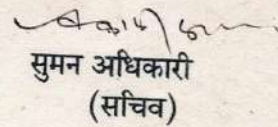 सुमन अधिकारी
(सचिव)